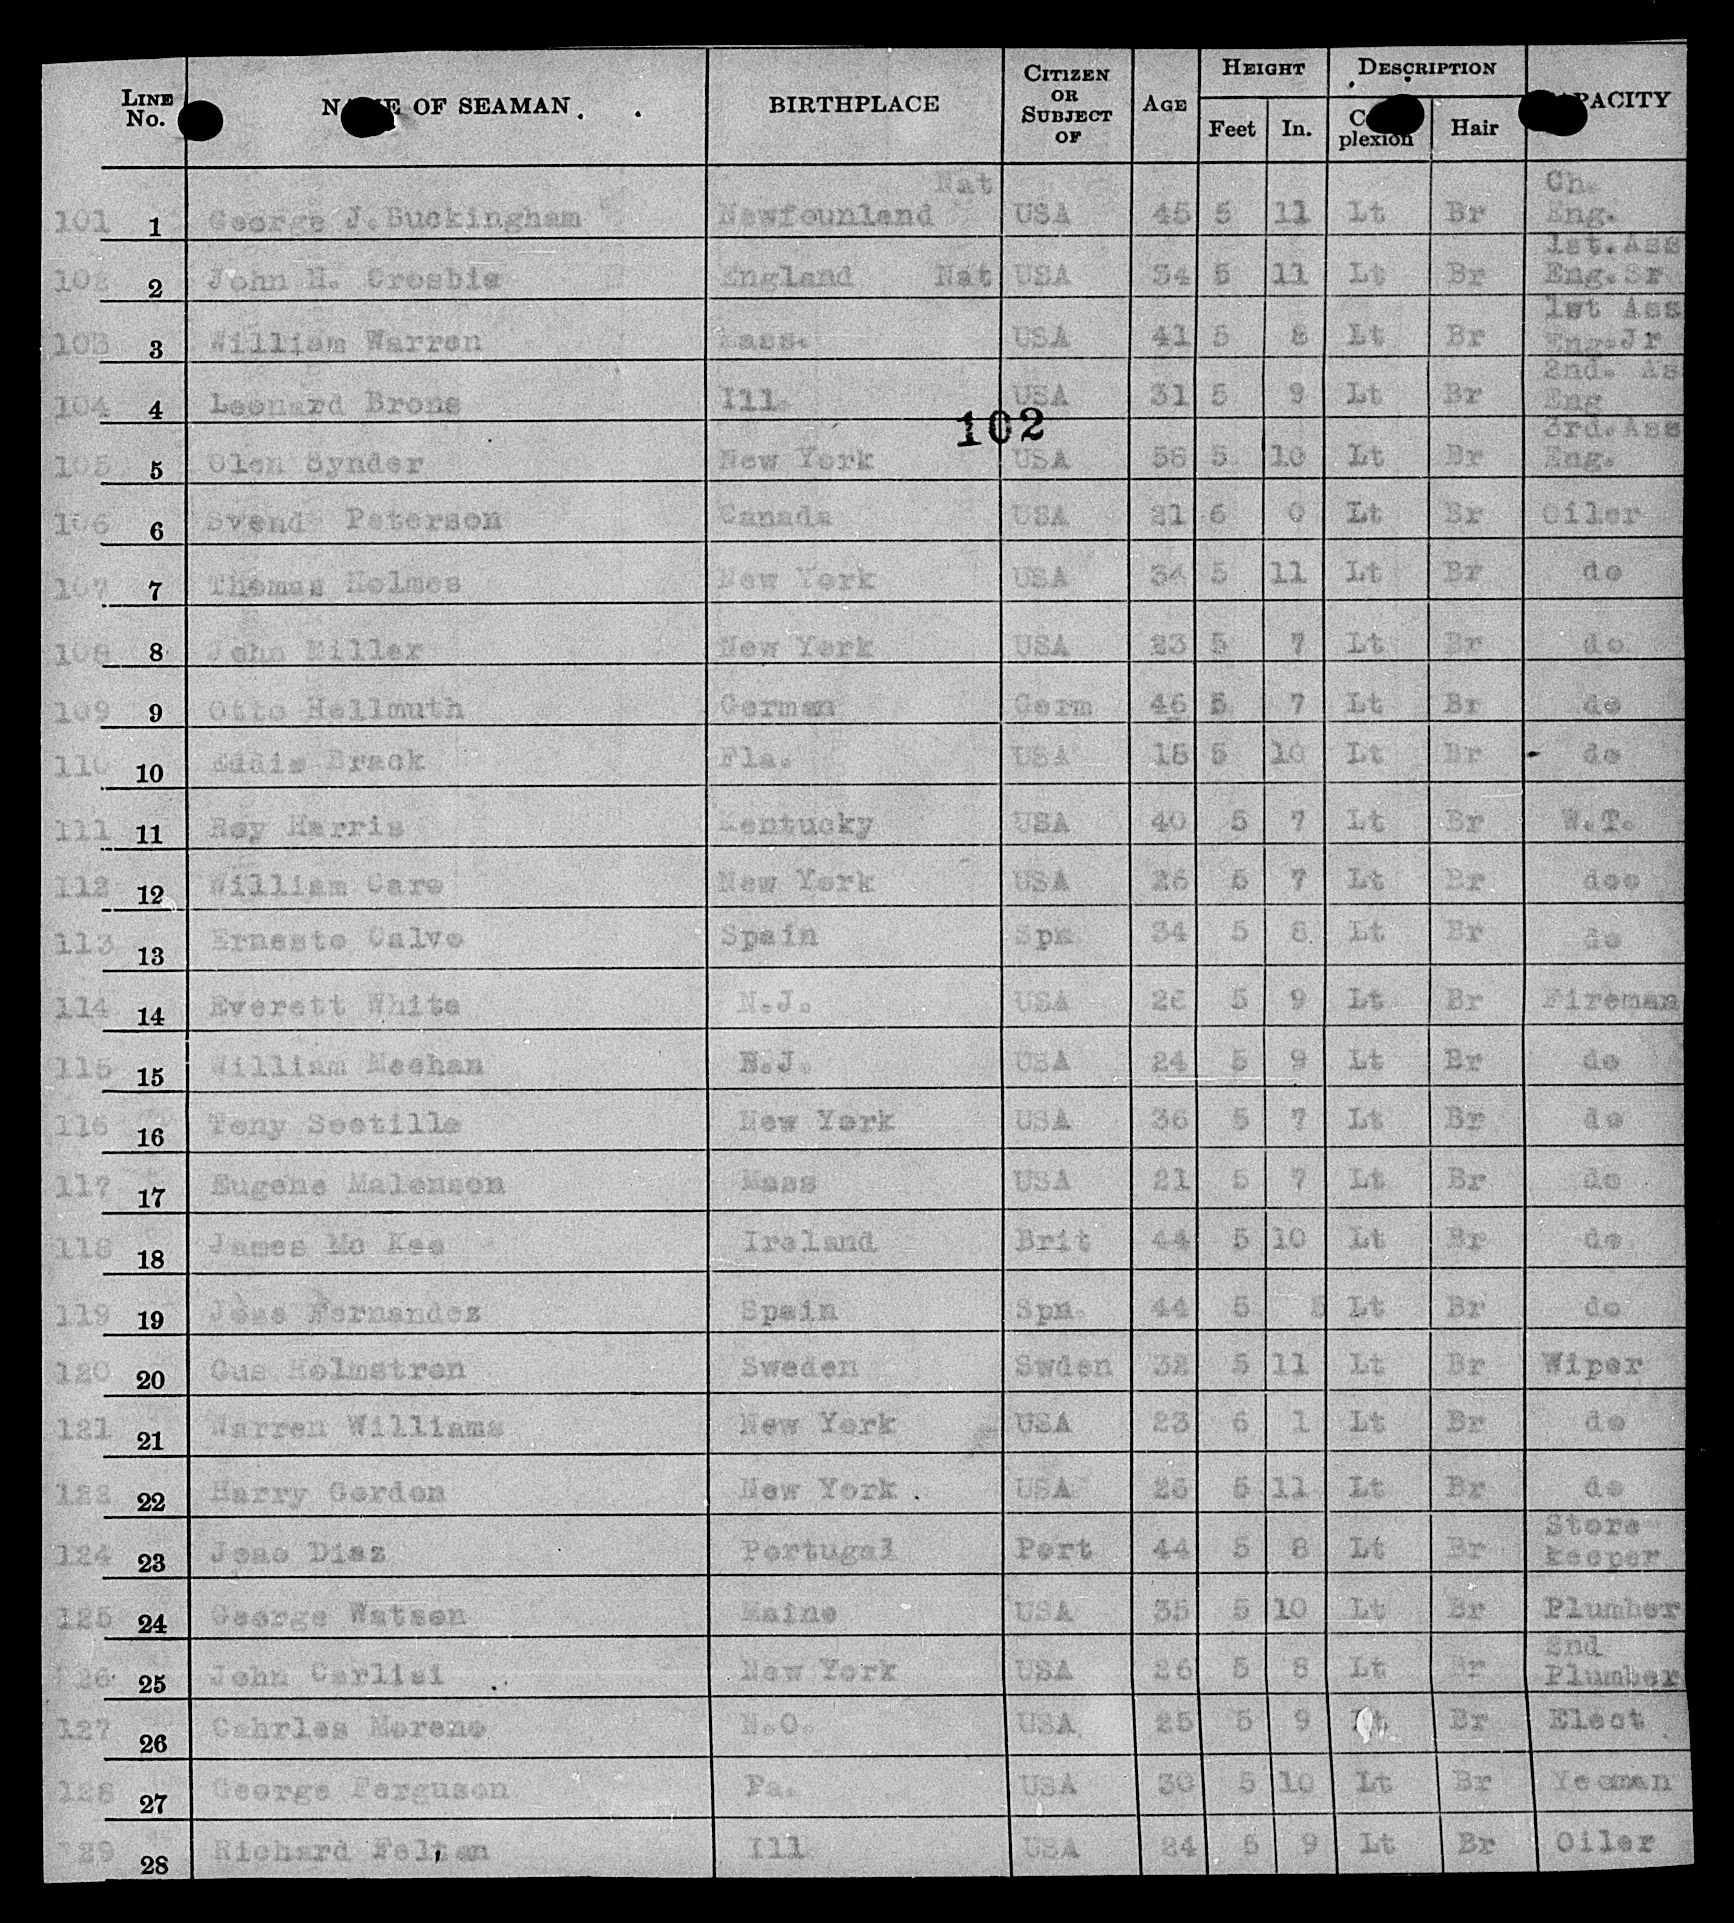 LINE No. NAME OF SEAMAN BIRTHPLACE CITIZEN OR SUBJECT OF AGE HEIGHT Feet In. DESCRIPTION Complexion Hair CAPACITY
101 1 George J. Buckingham Newfounland Nat USA 45 5 11 Lt Br Ch. Eng.
102 2 John H. Crosbie England Nat USA 34 5 11 Lt Br 1st. Ass Eng. Sr
103 3 William Warren Mass. USA 41 5 8 Lt Br 1st Ass Eng. Jr
104 4 Leonard Brone Ill. USA 31 5 9 Lt Br 2nd. As Eng
102
105 5 Olen Synder New York USA 58 5 10 Lt Br 3rd. Ass Eng.
106 6 Svend Peterson Canada USA 21 6 0 Lt Br Oiler
107 7 Thomas Holmes New York USA 34 5 11 Lt Br do
108 8 John Miller New York USA 23 5 7 Lt Br do
109 9 Otto Hellmuth German Germ 46 5 7 Lt Br do
110 10 Eddie Brack Fla. USA 18 5 10 Lt Br do
111 11 Roy Harris Kentucky USA 40 5 7 Lt Br W.T.
112 12 William Caro New York USA 26 5 7 Lt Br doo
113 13 Ernesto Calvo Spain Spn 34 5 8 Lt Br do
114 14 Everett White N.J. USA 26 5 9 Lt Br Fireman
115 15 William Meehan N.J. USA 24 5 9 Lt Br do
116 16 Tony Sootille New York USA 36 5 7 Lt Br do
117 17 Eugene Malenson Mass USA 21 5 7 Lt Br do
118 18 James Mc Kee Ireland Brit 44 5 10 Lt Br do
119 19 Jose Fernandez Spain Spn. 44 5 5 Lt Br do
120 20 Gus Holmstren Sweden Swden 32 5 11 Lt Br Wiper
121 21 Warren Williams New York USA 23 6 1 Lt Br do
122 22 Harry Gordon New York USA 26 5 11 Lt Br do
124 23 Joao Diaz Portugal Port 44 5 8 Lt Br Store keeper
125 24 George Watson Maine USA 35 5 10 Lt Br Plumber
126 25 John Carlisi New York USA 26 5 8 Lt Br 2nd Plumber
127 26 Cahrles Moreno N.O. USA 25 5 9 Lt Br Elect
128 27 George Ferguson Pa. USA 30 5 10 Lt Br Yeoman
129 28 Richard Felten Ill USA 24 5 9 Lt Br Oiler